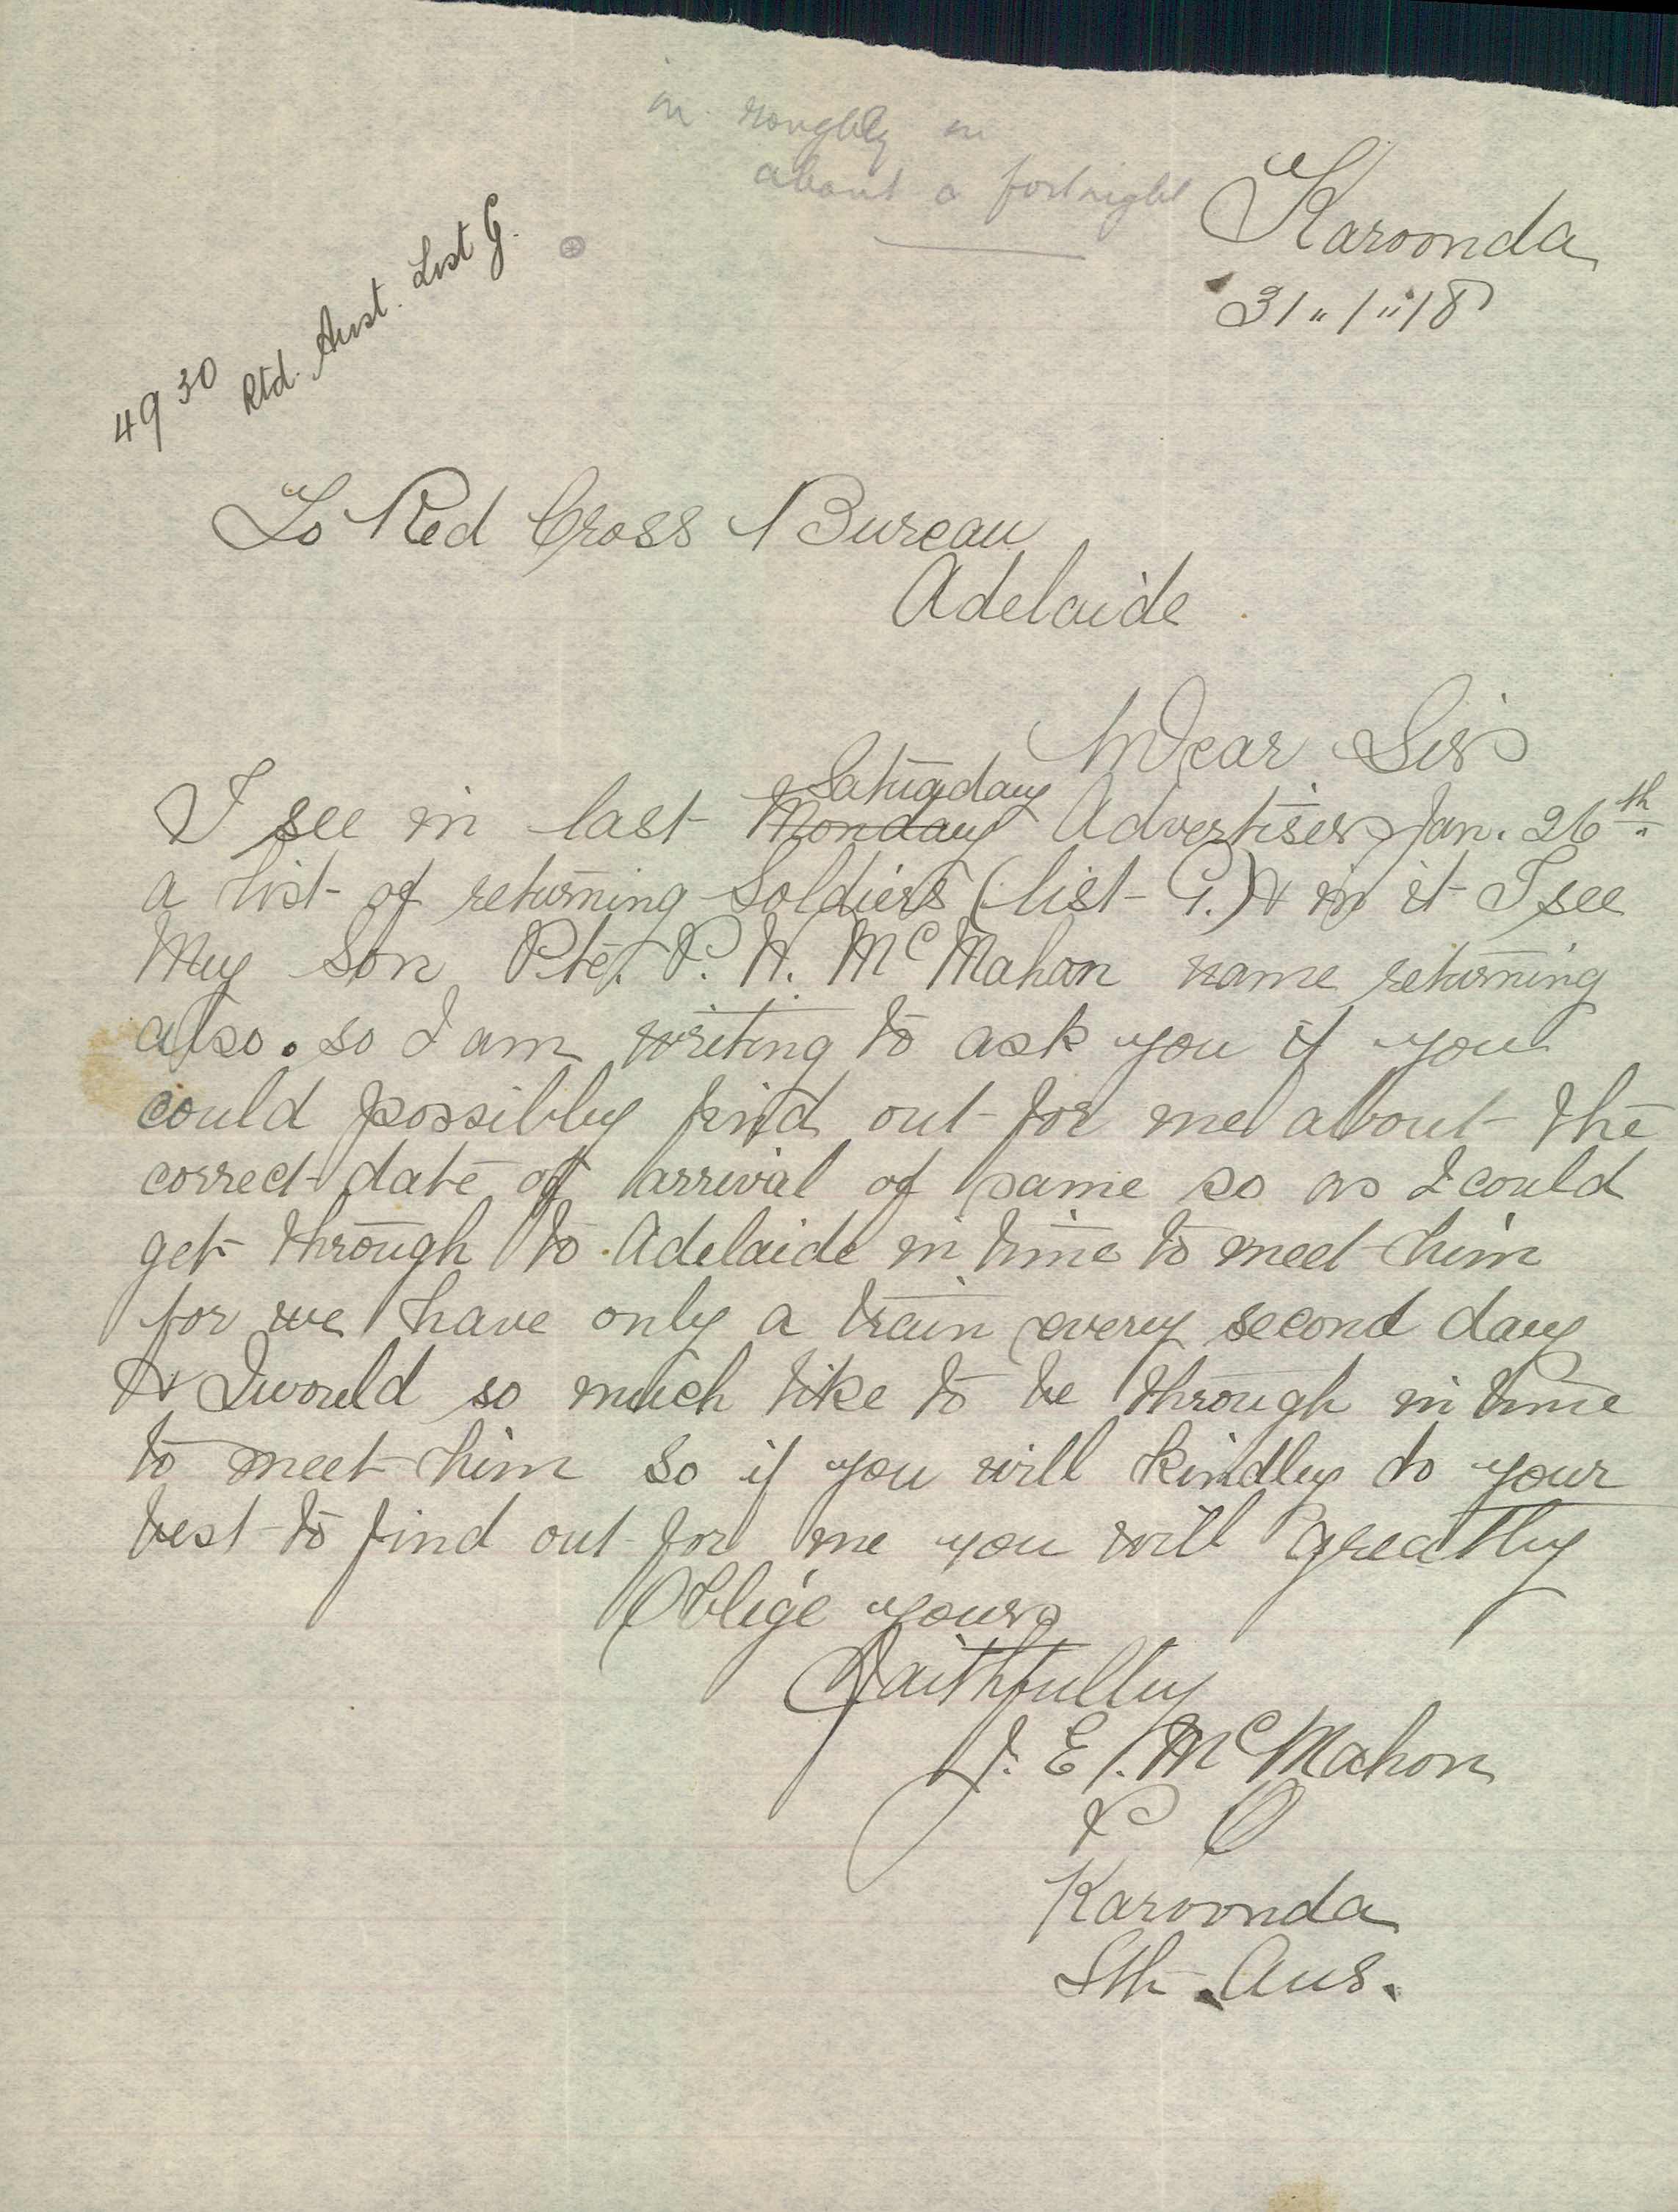 in roughly in
about a fortnight
Karoonda
31"1"18
4930 Rtd. Aust. List G.
To Red Cross Bureau
Adelaide
Dear Sir
Saturday
I see in last Monday Advertiser Jan. 26th
a list of returning Soldiers (list G.) & in it I see
My Son Pte. P. H. McMahon name returning
also. so I am writing to ask you if you
could possibly find out for me about the
correct date of arrival of same so as I could
get through to Adelaide in time to meet him
for we have only a train every second day
& I would so much like to be through in time
to meet him so if you will kindly do your
best to find out for me you will greatly
Oblige yours
Faithfully
J. E. McMahon
P O
Karoonda
Sth. Aus.